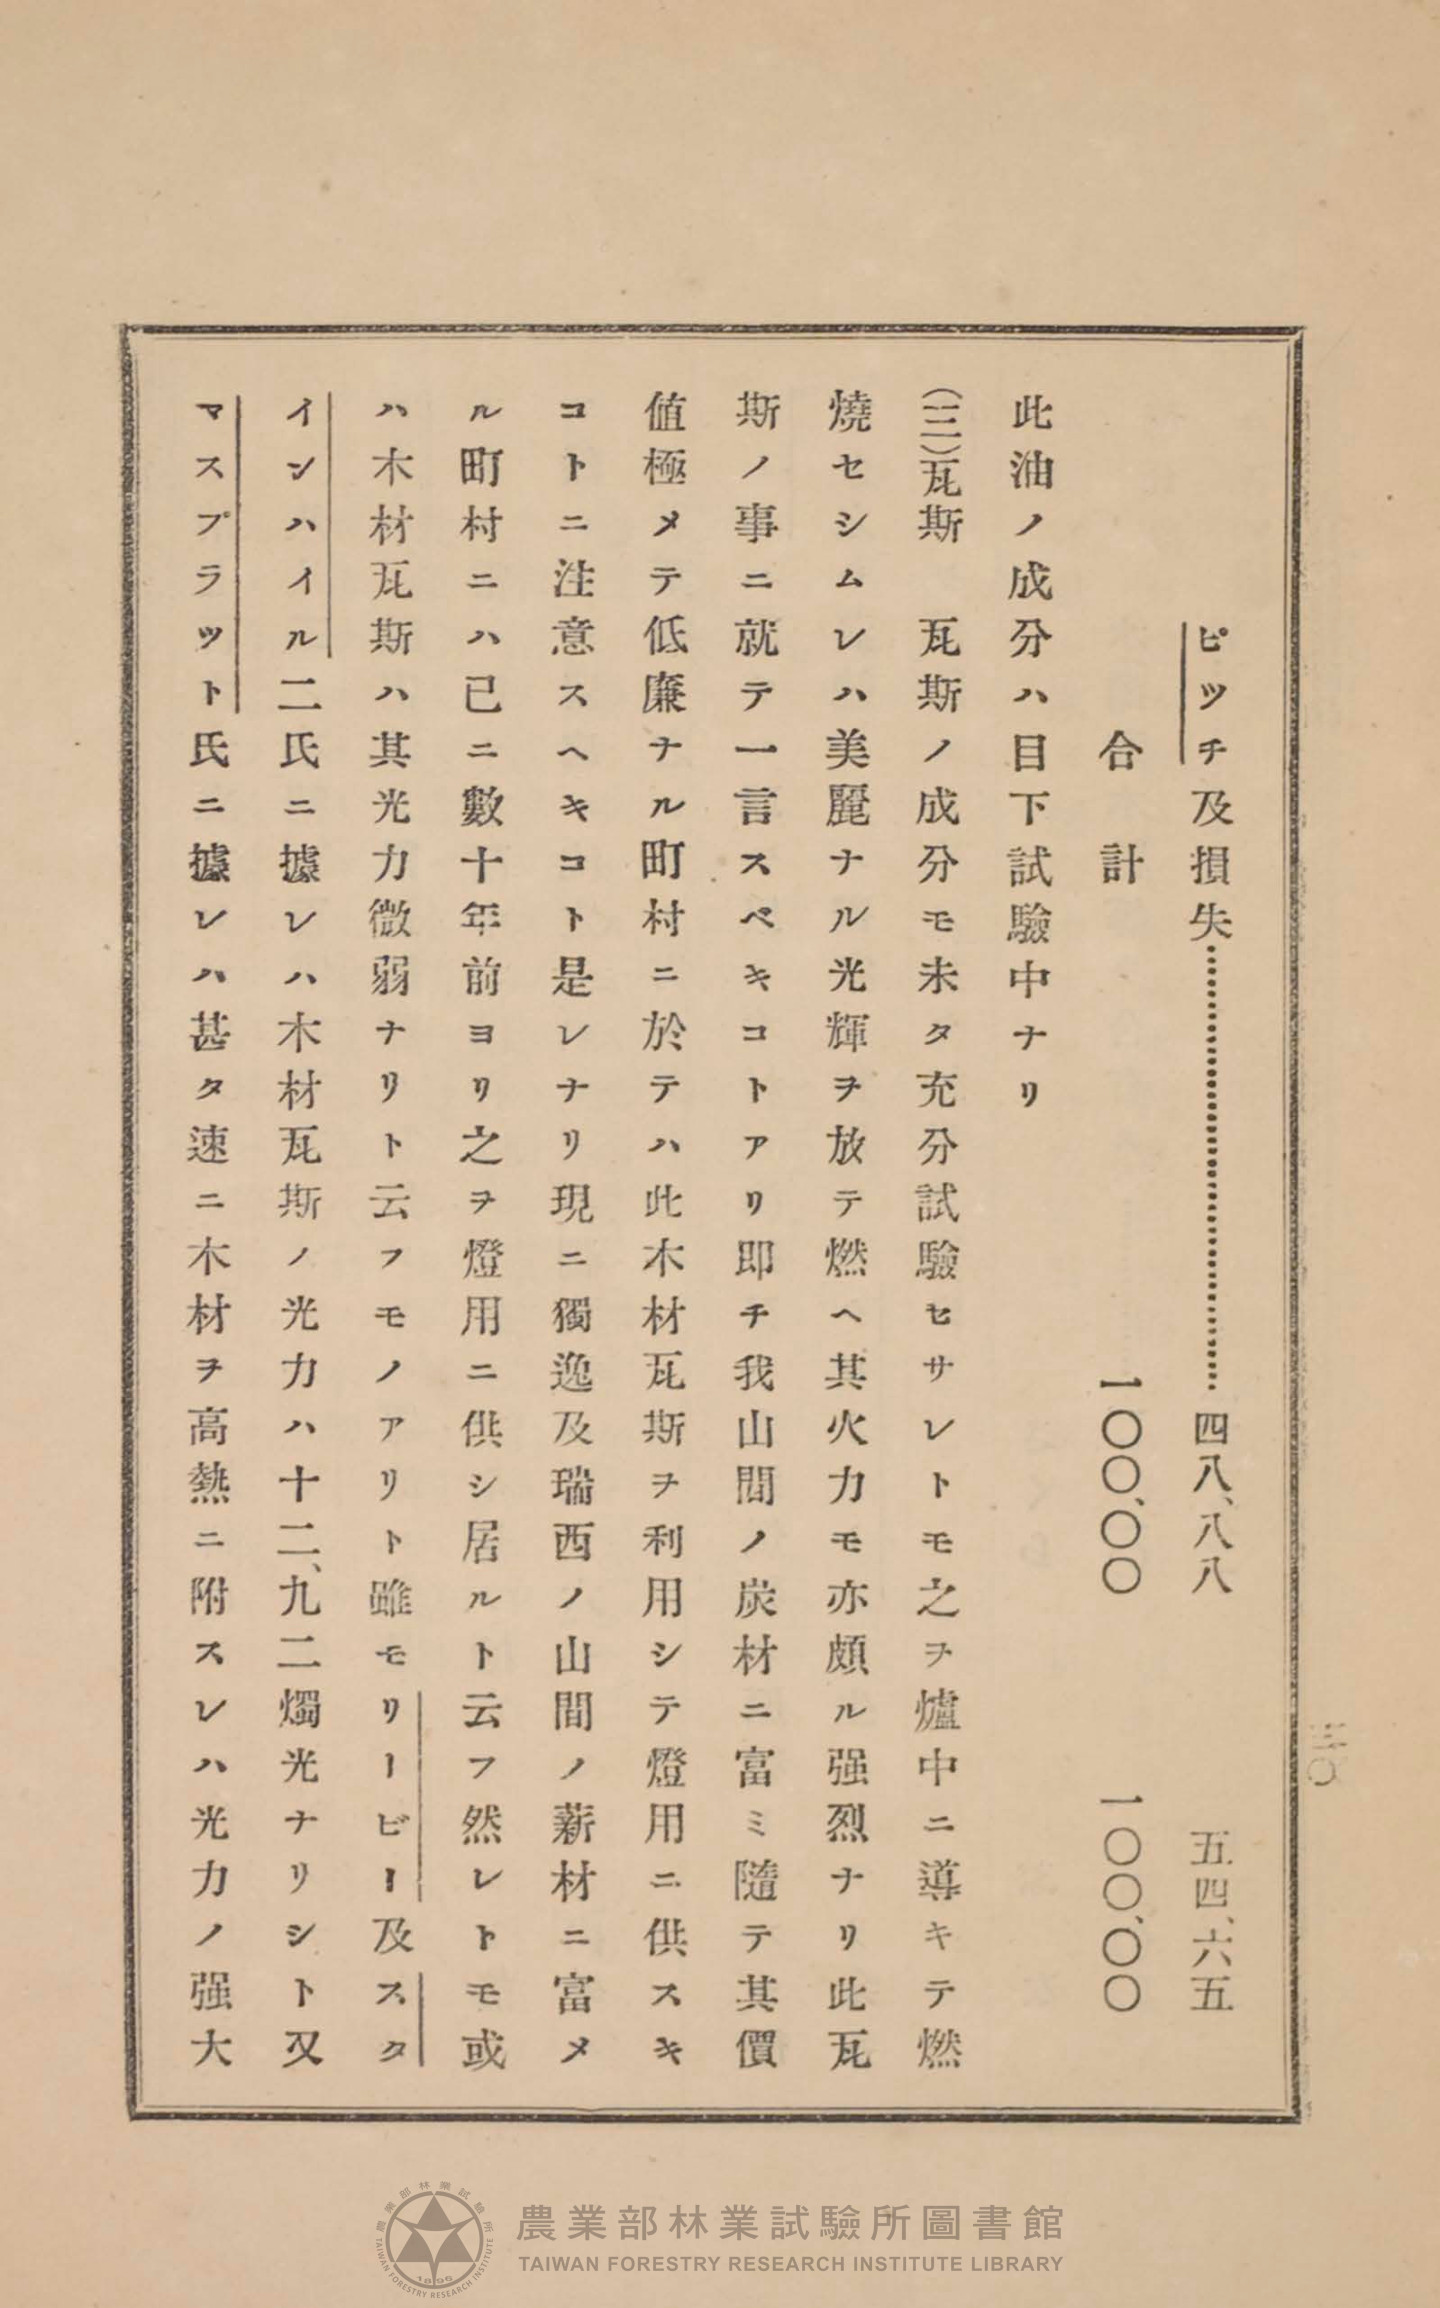 ピツチ及損失………………四八、八八 五四、六五
合計 一〇〇、〇〇 一〇〇、〇〇
此油ノ成分ハ目下試驗中ナリ
(三)瓦斯 瓦斯ノ成分モ未タ充分試驗セサレトモ之ヲ爐中ニ導キテ燃
燒セシムレハ美麗ナル光輝ヲ放テ燃ヘ其火力モ亦頗ル强烈ナリ此瓦
斯ノ事ニ就テ一言スベキコトアリ即チ我山間ノ炭材ニ富ミ隨テ其價
値極メテ低廉ナル町村ニ於テハ此木材瓦斯ヲ利用シテ燈用ニ供スキ
コトニ注意スヘキコト是レナリ現ニ獨逸及瑞西ノ山間ノ薪材ニ富メ
ル町村ニハ已ニ數十年前ヨリ之ヲ燈用ニ供シ居ルト云フ然レトモ或
ハ木材瓦斯ハ其光力微弱ナリト云フモノアリト雖モリービー及スタ
インハイル二氏ニ據レハ木材瓦斯ノ光力ハ十二、九二燭光ナリシト又
マスプラツト氏ニ據レハ甚タ速ニ木材ヲ高熱ニ附スレハ光力ノ强大
三〇
農業部林業試驗所圖書館
TAIWAN FORESTRY RESEARCH INSTITUTE LIBRARY
農業部林業試驗所
TAIWAN FORESTRY RESEARCH INSTITUTE
1896